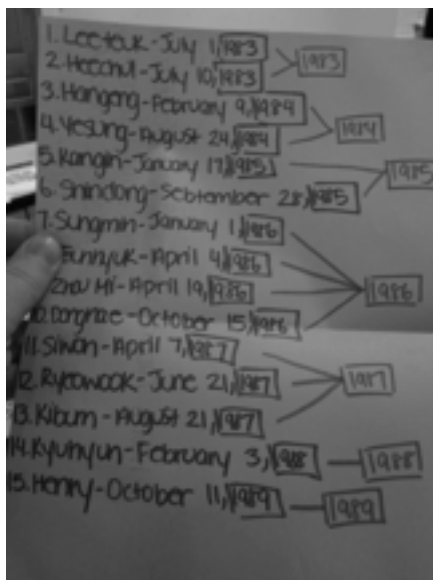 1. Leeteuk-July 1, 1983
2. Heechul-July 10, 1983
1983
3. Hangeng-February 9, 1984
4. Yesung-August 24, 1984
1984
5. Kangin-January 17, 1985
6. Shindong-September 28, 1985
1985
7. Sungmin-January 1, 1986
Eunhyuk-April 4, 1986
Zhou Mi-April 19, 1986
10. Donghae-October 15, 1986
1986
11. Siwon-April 7, 1987
12. Ryeowook-June 21, 1987
13. Kibum-August 21, 1987
1987
14. Kyuhyun-February 3, 1988
1988
15. Henry-October 11, 1989
1989